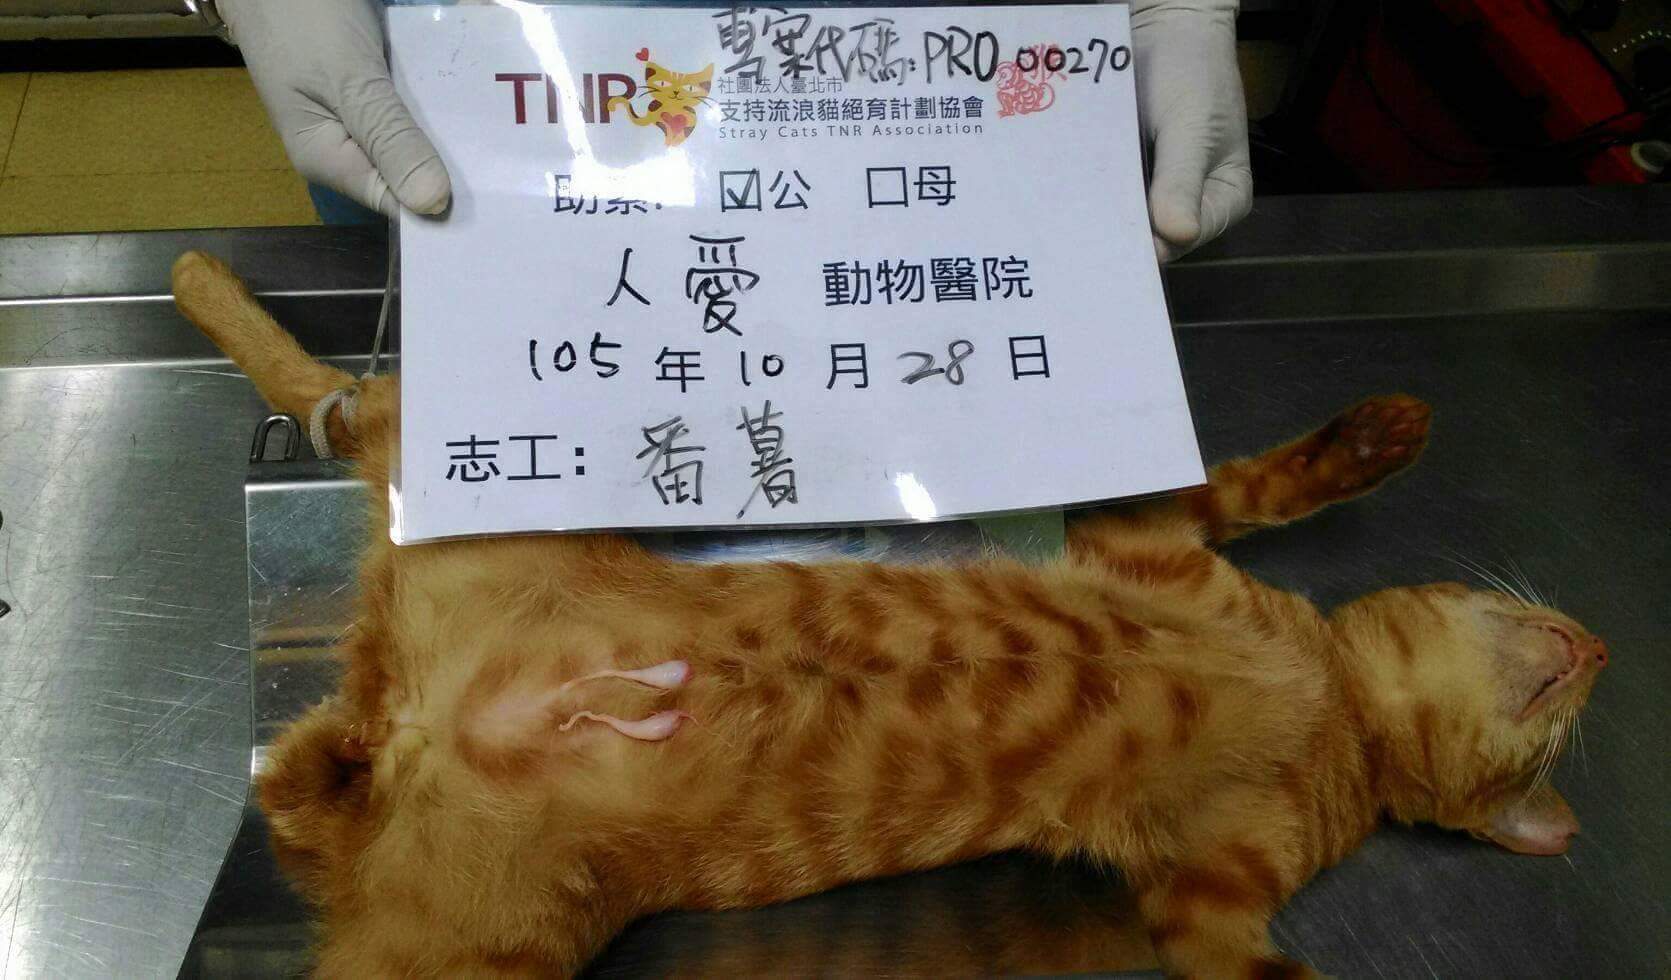 專案代碼:PRO 00270
TNR 社團法人臺北市
支持流浪貓絕育計劃協會
Stray Cats TNR Association
助紮: ☑公 □母
人愛 動物醫院
105年10月28日
志工: 番薯